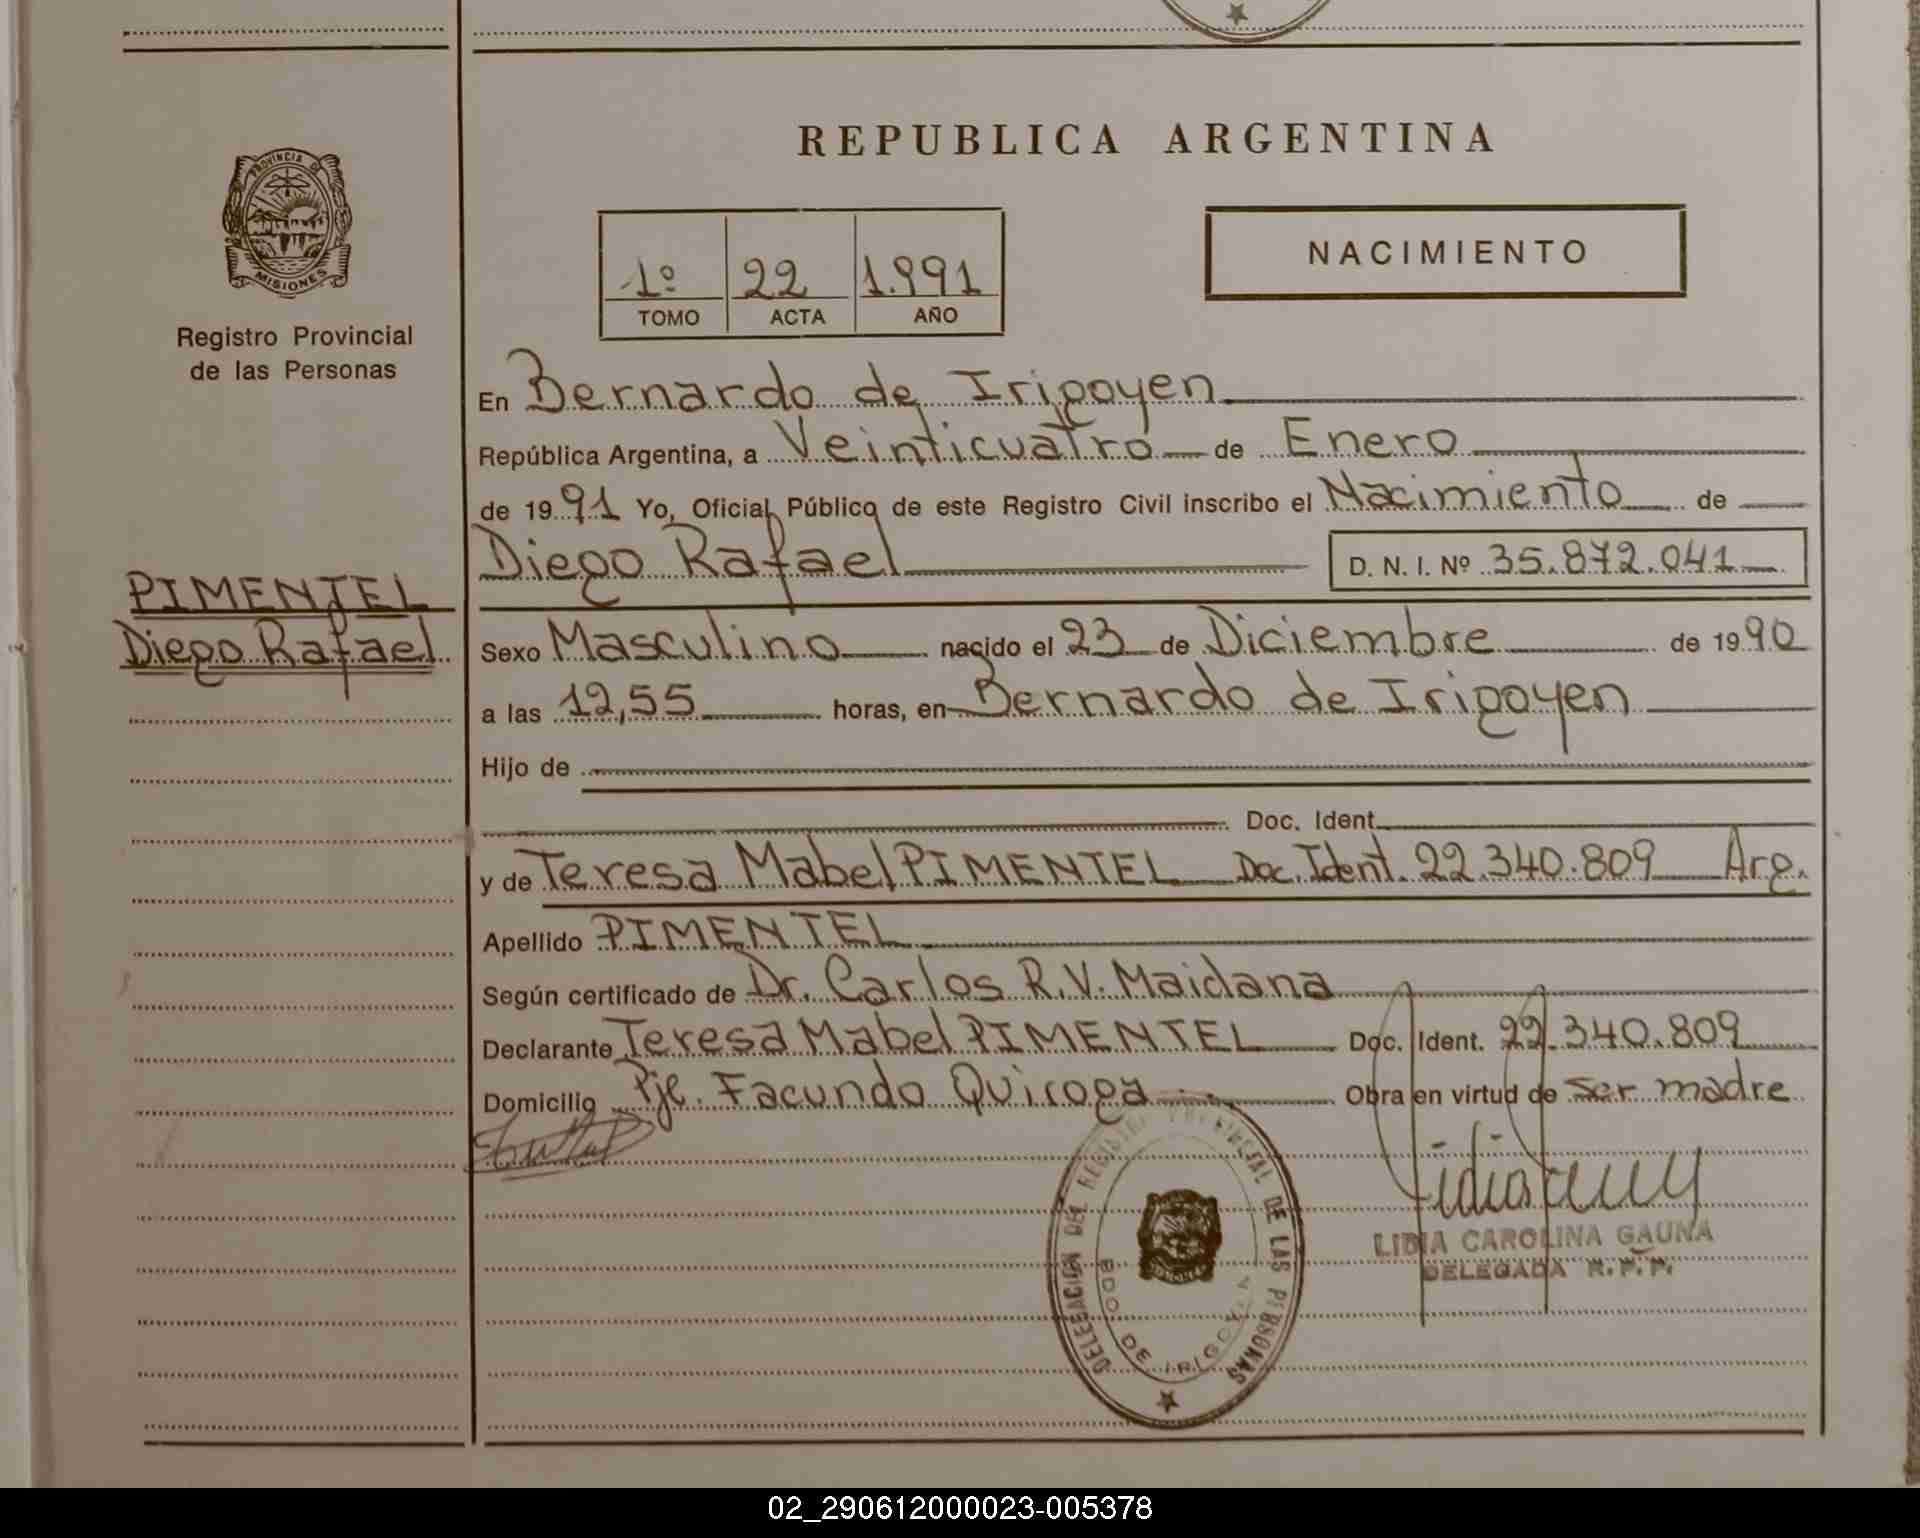 REPUBLICA ARGENTINA
PROVINCIA DE
MISIONES
Registro Provincial
de las Personas
1º 22 1.991
TOMO ACTA AÑO
NACIMIENTO
En Bernardo de Irigoyen
República Argentina, a Veinticuatro de Enero
de 1991 Yo, Oficial Público de este Registro Civil inscribo el Nacimiento de
Diego Rafael D. N. I. Nº 35.872.041
PIMENTEL
Diego Rafael
Sexo Masculino nacido el 23 de Diciembre de 1990
a las 12,55 horas, en Bernardo de Irigoyen
Hijo de
Doc. Ident.
y de Teresa Mabel PIMENTEL Doc. Ident. 22.340.809 Arg.
Apellido PIMENTEL
Según certificado de Dr. Carlos R.V. Maidana
Declarante Teresa Mabel PIMENTEL Doc. Ident. 22.340.809
Domicilio Pje. Facundo Quiroga Obra en virtud de ser madre
DELEGACION DEL REGISTRO PROVINCIAL DE LAS PERSONAS
BDO. DE IRIGOYEN
LIDIA CAROLINA GAUNA
DELEGADA R.P.P.
02_290612000023-005378